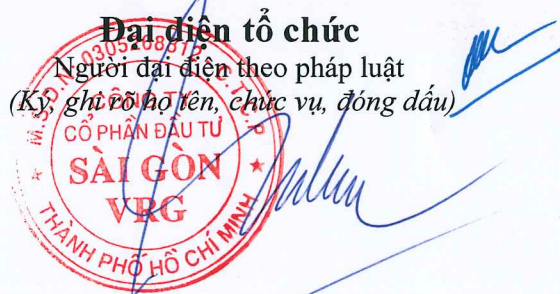 Đại diện tổ chức
Người đại diện theo pháp luật
(Ký, ghi rõ họ tên, chức vụ, đóng dấu)
CÔNG TY
CỔ PHẦN ĐẦU TƯ
SÀI GÒN
VRG
THÀNH PHỐ HỒ CHÍ MINH